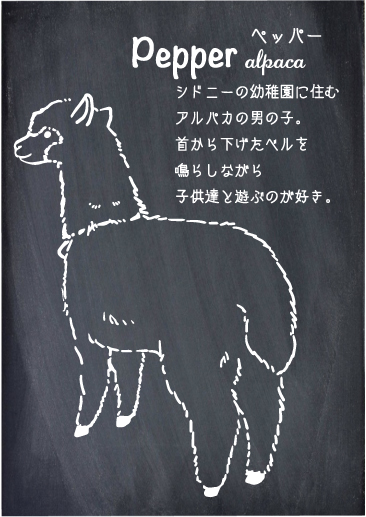 ペッパー
Pepper alpaca
シドニーの幼稚園に住む
アルパカの男の子。
首から下げたベルを
鳴らしながら
子供達と遊ぶのが好き。